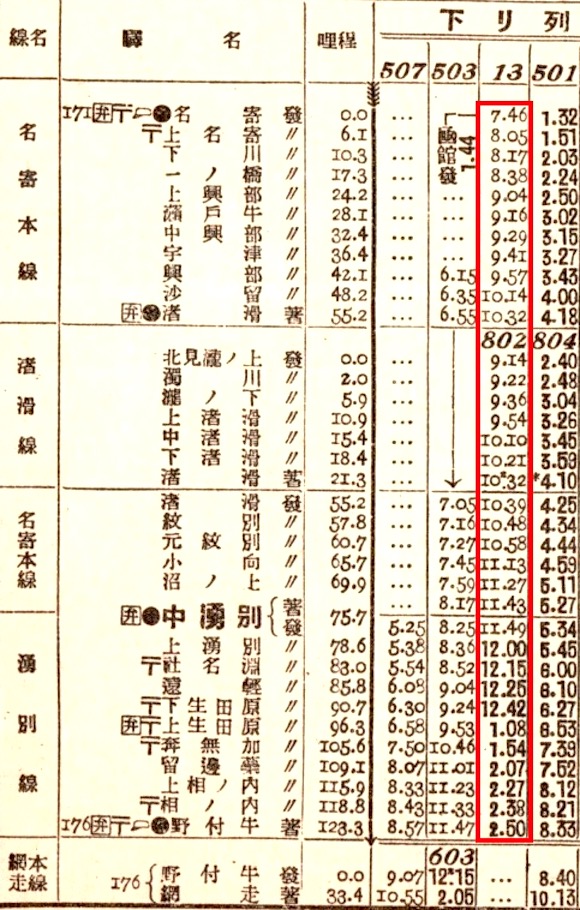 線名 驛 名 哩程 下リ列
507 503 13 501
171 弁 〒 名寄 發 0.0 ... 7.46 1.32
〒 上名寄 〃 6.1 ... 函館發 1.44 8.05 1.51
下川 〃 10.3 ... 8.17 2.03
一ノ橋 〃 17.3 ... 8.38 2.24
上興部 〃 24.2 ... ... 9.04 2.50
瀬戸牛 〃 28.1 ... ... 9.16 3.02
中興部 〃 32.4 ... ... 9.29 3.15
宇津 〃 36.4 ... ... 9.41 3.27
興部 〃 42.1 ... 6.15 9.57 3.43
沙留 〃 48.2 ... 6.35 10.14 4.00
弁 渚滑 著 55.2 ... 6.55 10.32 4.18
名寄本線
802 804
北見瀧ノ上 發 0.0 ... 9.14 2.40
濁川 〃 2.0 ... 9.22 2.48
瀧ノ下 〃 5.9 ... 9.36 3.04
上渚滑 〃 10.9 ... 9.54 3.26
中渚滑 〃 15.4 ... 10.10 3.45
下渚滑 〃 18.4 ... 10.21 3.59
渚滑 著 21.3 ... 10*32 *4.10
渚滑線
渚滑 發 55.2 ... 7.05 10.39 4.25
紋別 〃 57.8 ... 7.16 10.48 4.34
元紋別 〃 60.7 ... 7.27 10.58 4.44
小向 〃 65.7 ... 7.45 11.13 4.59
沼ノ上 〃 69.9 ... 7.59 11.27 5.11
名寄本線
弁 中湧別 著 75.7 ... 8.17 11.43 5.27
發 5.25 8.25 11.49 5.34
上湧別 〃 78.6 5.38 8.36 12.00 5.45
〒 社名淵 〃 83.0 5.54 8.52 12.15 6.00
遠輕 〃 85.8 6.08 9.04 12.25 6.10
〒 下生田原 〃 90.7 6.30 9.24 12.42 6.27
弁 〒 上生田原 〃 96.3 6.58 9.53 1.08 6.53
〒 奔無加 〃 105.6 7.50 10.46 1.54 7.39
留邊蘂 〃 109.1 8.07 11.01 2.07 7.52
上相ノ内 〃 115.9 8.33 11.23 2.27 8.12
〒 相ノ内 〃 118.8 8.43 11.33 2.38 8.21
176 弁 〒 野付牛 著 123.3 8.57 11.47 2.50 8.33
湧別線
603
176 野付牛 發 0.0 9.07 12*15 ... 8.40
網走 著 33.4 10.55 2.05 ... 10.13
網走本線